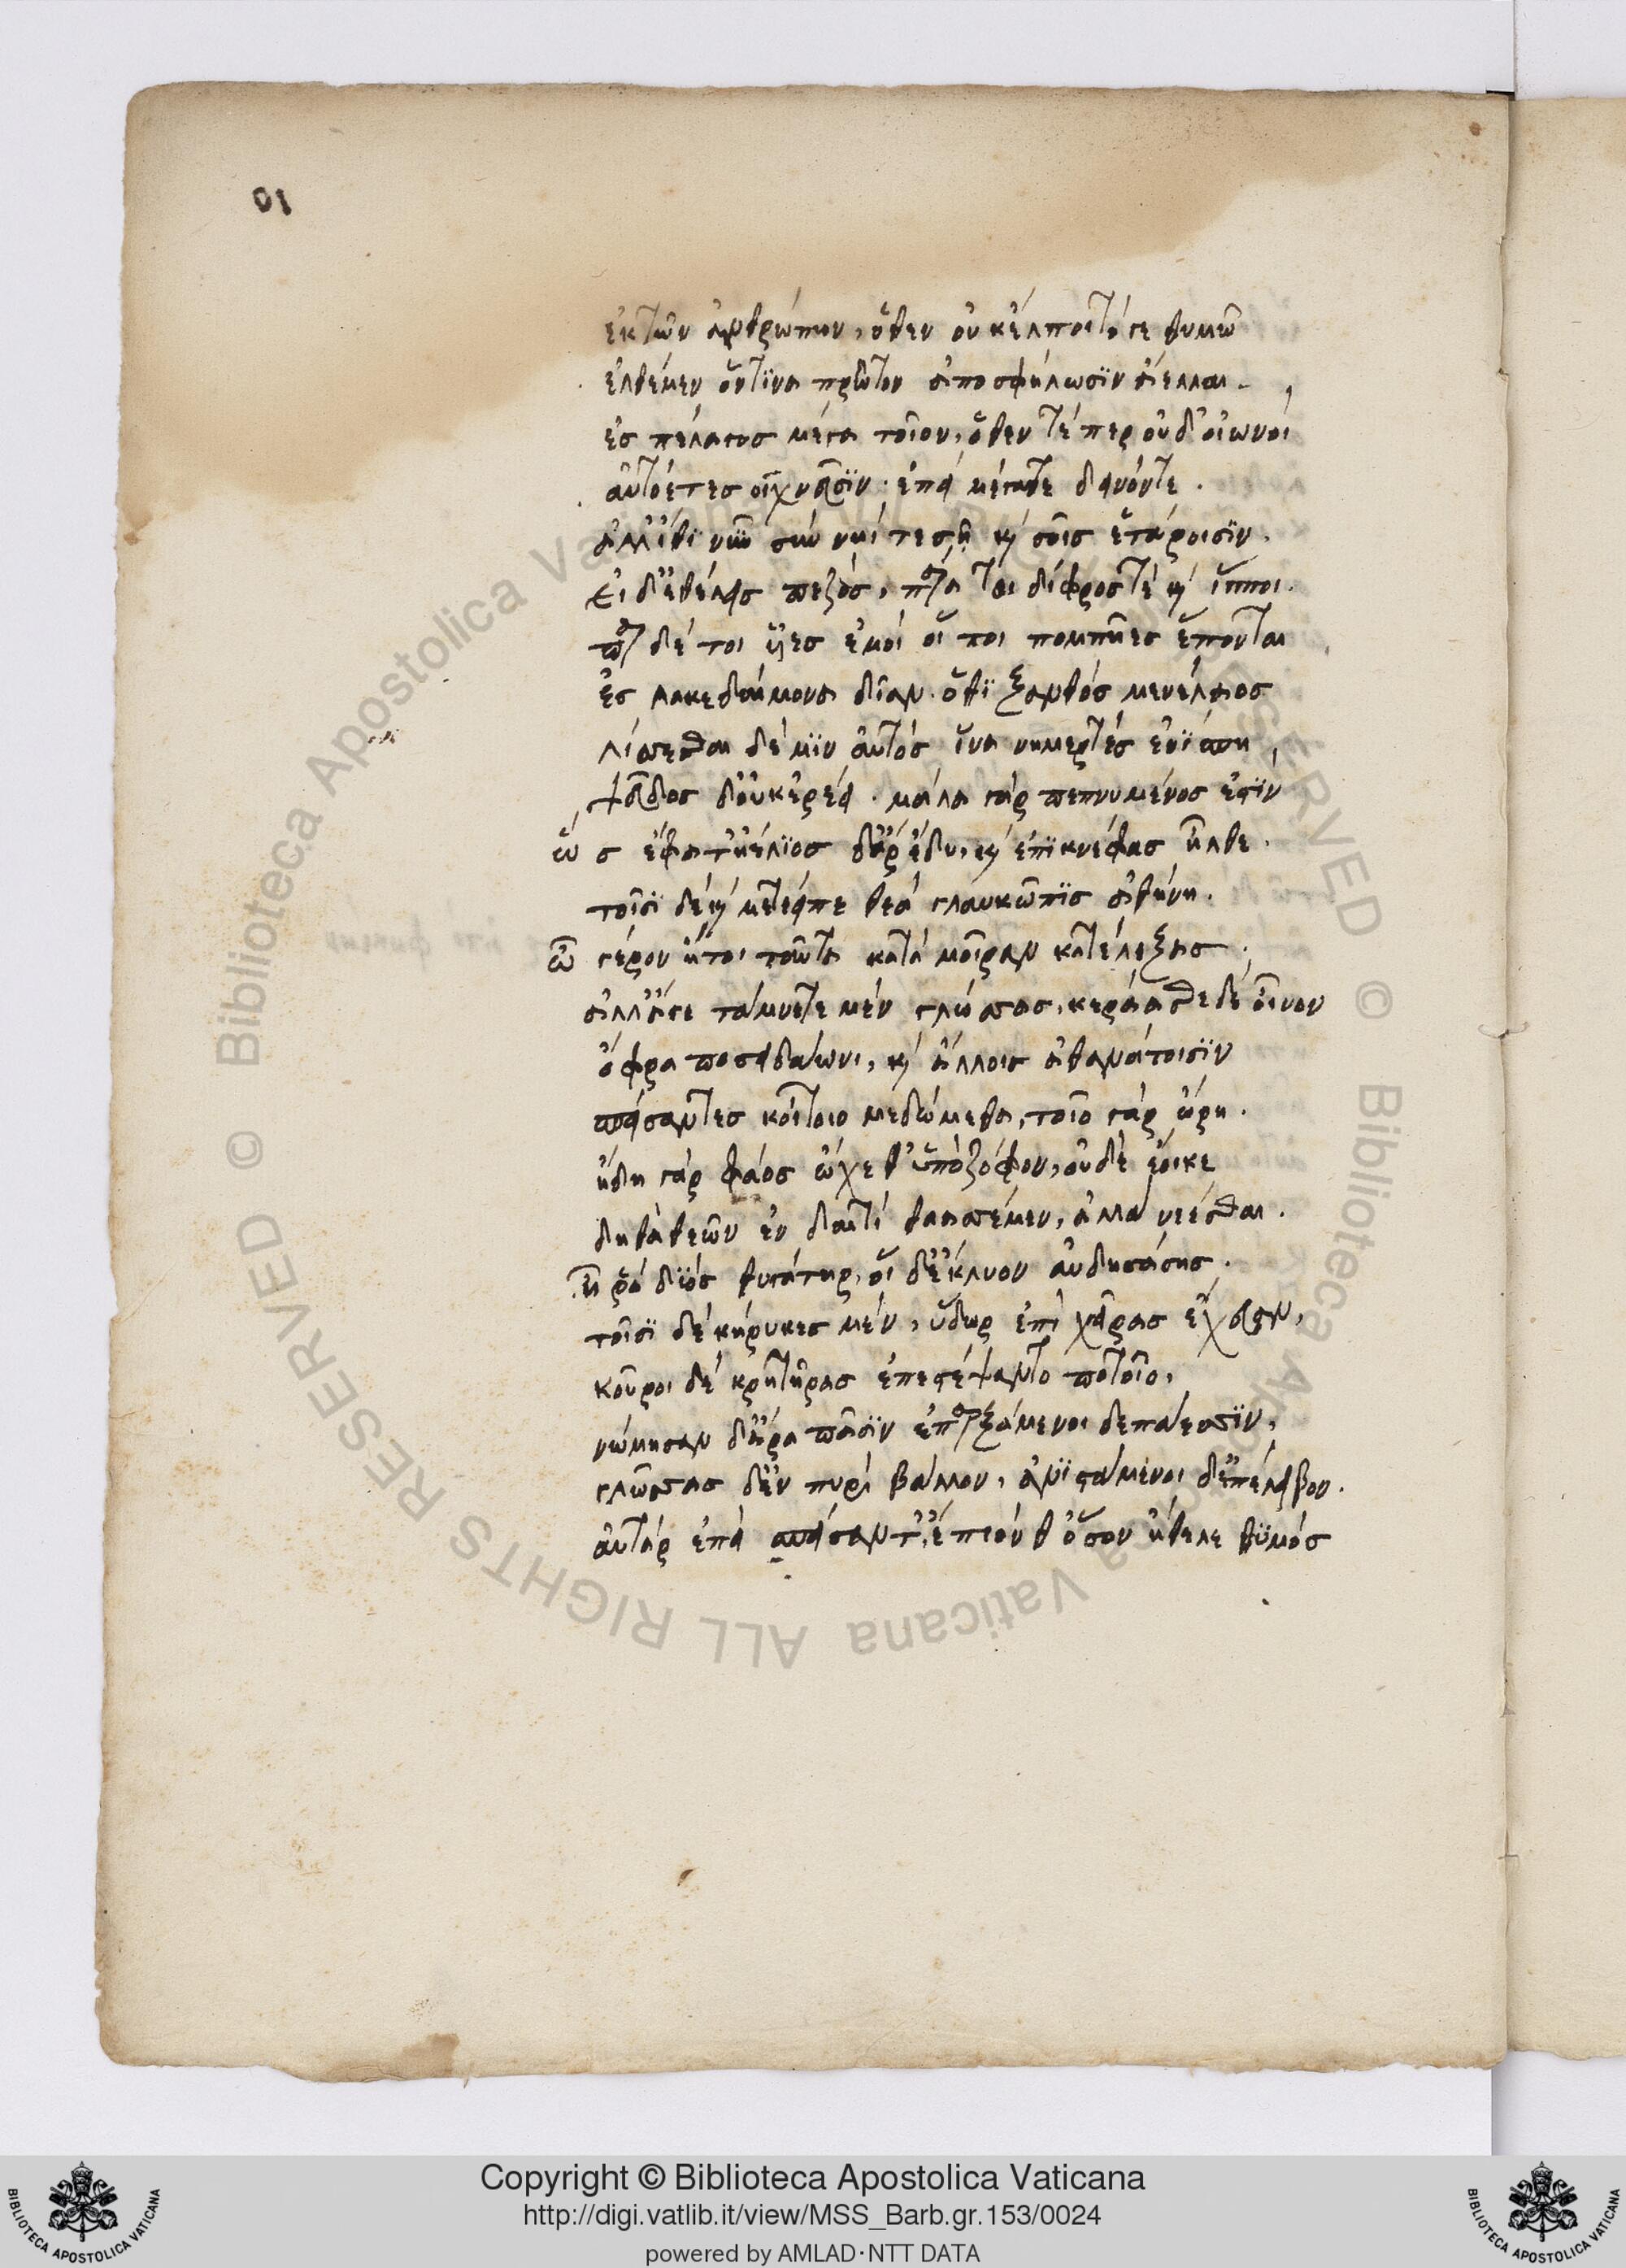 10
ἐκ τῶν ἀνθρώπων, ὅθεν οὐκ ἔλποιτό γε θυμῶ
ἐλθέμεν ὅντϊνα πρῶτον ἀποσφήλωσϊν ἄελλαι.
ἐς πέλαγος μέγα τοῖον, ὅθεν τέ περ οὐδ' οἰωνοὶ
αὐτόετες οἰχνεῦσϊν. ἐπεὶ μέγατε δεινόντε.
ἀλλ' ἴθϊ νῦν σὺν νηΐ τε σῇ καὶ σοῖς ἑτάροισϊν.
εἰ δ' ἐθέλεις πεζὸς, πάρα τοι δίφρος τὲ καὶ ἵπποι.
πὰρ δέ τοι υἷες ἐμοὶ οἵ τοι πομπῆες ἕπονται
ἐς λακεδαίμονα δῖαν. ὅθϊ ξανθὸς μενέλαος
λίσσεσθαι δέ μϊν αὐτὸς ἵνα νημερτὲς ἐνΐσπη,
ψεῦδος δ' οὐκ ἐρέει. μάλα γὰρ πεπνυμένος ἐστϊν
ὣς ἔφατ' ἠέλϊος δ' ἄρ' ἔδυ, καὶ ἐπὶ κνέφας ἦλθε.
τοῖσϊ δὲ καὶ μετέειπε θεὰ γλαυκῶπϊς ἀθήνη.
ὦ γέρον ἤτοι ταῦτα κατὰ μοῖραν κατέλεξας.
ἀλλ' ἄγε τάμνετε μὲν γλώσσας, κεράασθε δὲ οἶνον
ὄφρα ποσειδάωνι, καὶ ἄλλοις ἀθανάτοισϊν
σπείσαντες κοίτοιο μεδώμεθα, τοῖο γὰρ ὥρη.
ἤδη γὰρ φάος οἴχεθ' ὑπὸ ζόφον, οὐδὲ ἔοικε
δηθὰ θεῶν ἐν δαιτὶ θαασσέμεν, ἀλλὰ νέεσθαι.
ἦ ῥα δϊὸς θυγάτηρ, οἱ δ' ἔκλυον αὐδησάσης.
τοῖσϊ δὲ κήρυκες μὲν, ὕδωρ ἐπὶ χεῖρας ἔχευαν,
κοῦροι δὲ κρητῆρας ἐπεστέψαντο ποτοῖο,
νώμησαν δ' ἄρα πᾶσϊν ἐπαρξάμενοι δεπάεσσϊν,
γλώσσας δ' ἐν πυρὶ βάλλον, ἀνϊστάμενοι δ' ἐπέλειβον.
αὐτὰρ ἐπεὶ σπεῖσαν τ', ἔπιον θ' ὅσον ἤθελε θϋμὸς
© Biblioteca Apostolica Vaticana ALL RIGHTS RESERVED
Copyright © Biblioteca Apostolica Vaticana
http://digi.vatlib.it/view/MSS_Barb.gr.153/0024
powered by AMLAD·NTT DATA
BIBLIOTECA APOSTOLICA VATICANA
BIBLIOTECA APOSTOLICA VATICANA